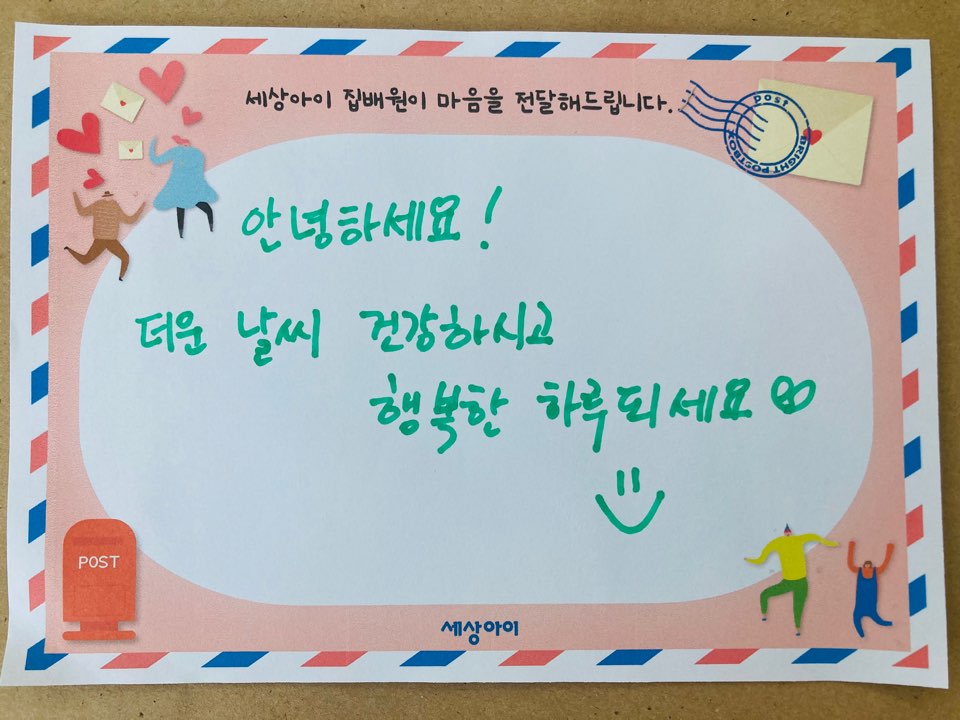 세상아이 집배원이 마음을 전달해드립니다.
post
BRIGHT POSTBOX
안녕하세요!
더운 날씨 건강하시고
행복한 하루 되세요
POST
세상아이